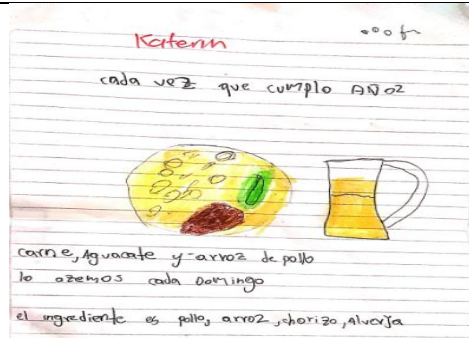 Katerin
cada vez que cumplo AÑOZ
carne, Aguacate y arroz de pollo
lo azemos cada Domingo
el ingrediente es pollo, arroz, chorizo, Alverja